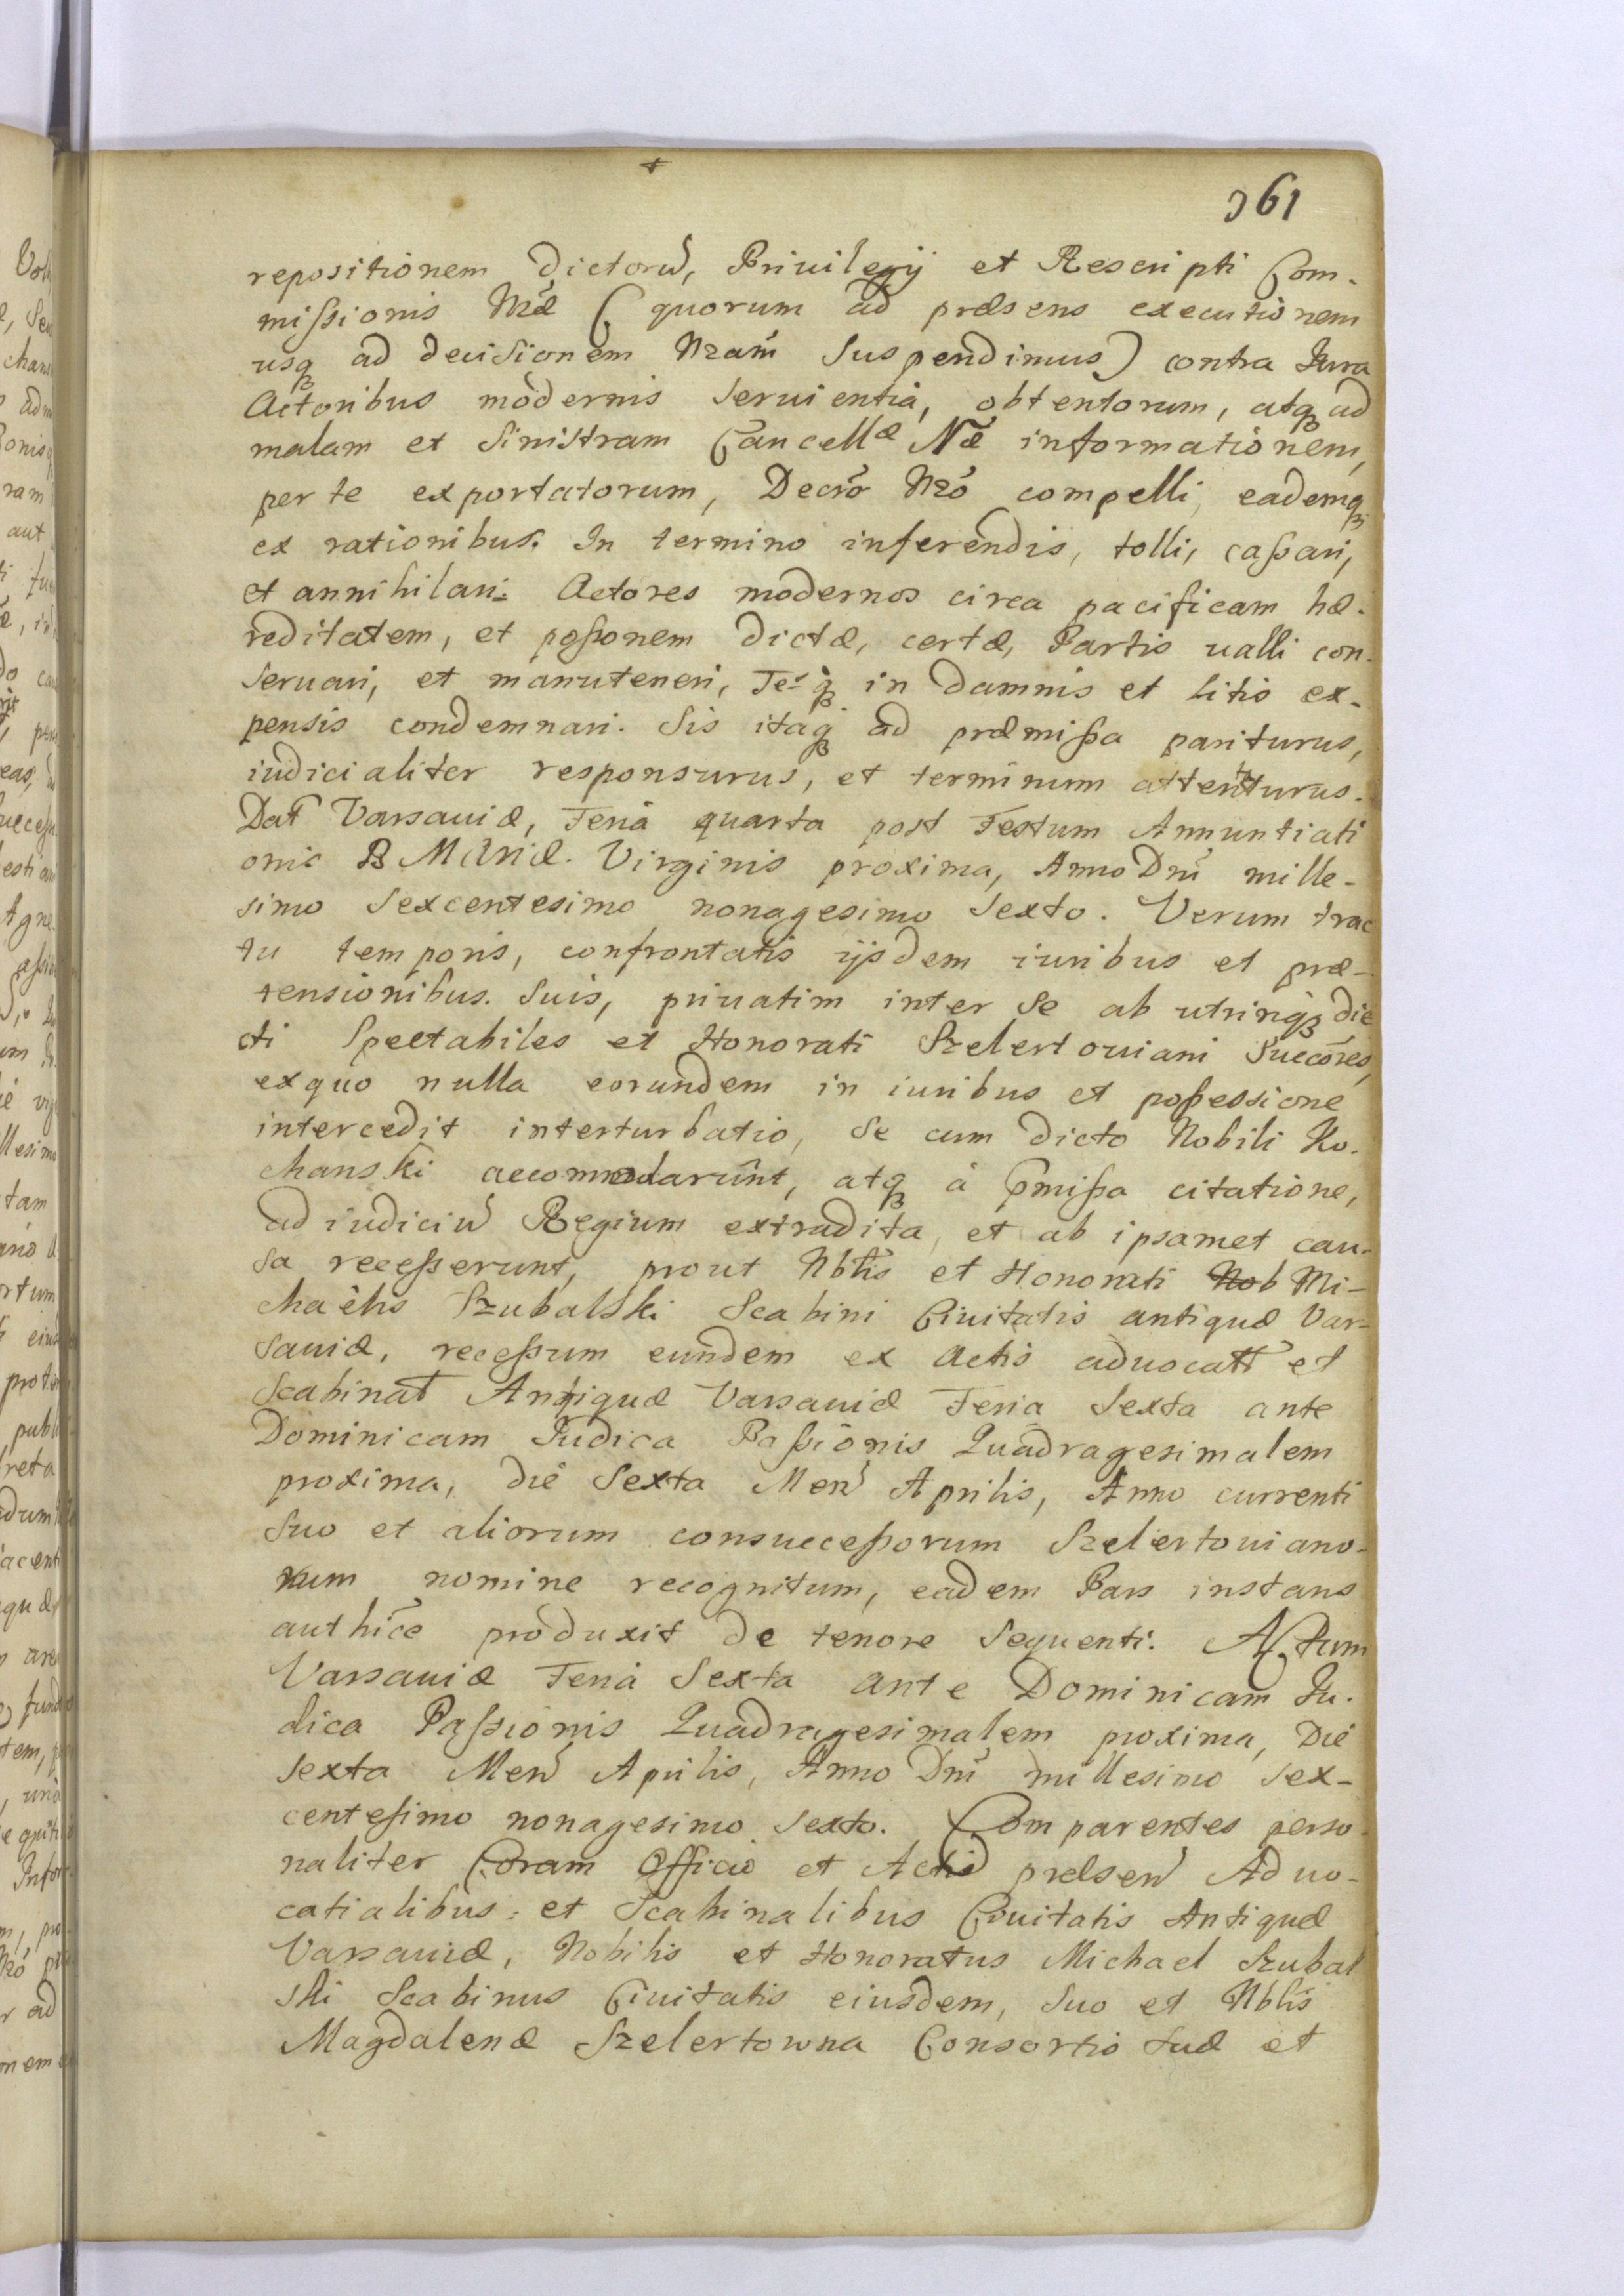 361
repositionem dictorũ, Priuilegij et Rescripti Com-
mißionis Nræ (quorum ad præsens executionem
usqꝫ ad decisionem Nram̃ suspendimus) contra Jura
Actoribus modernis seruientia, obtentorum, atqꝫ ad
malam et sinistram Cancellæ Næ informationem,
per te exportatorum, Decrõ Nrõ compelli, eademqꝫ
ex rationibus. In termino inferendis, tolli, caßari,
et annihilari. Actores modernos circa pacificam hæ-
reditatem, et poßonem dictæ, certæ, Partis ualli con-
seruari, et manuteneri, Te qꝫ in damnis et litis ex-
pensis condemnari. Sis itaqꝫ ad præmißa pariturus,
iudicialiter responsurus, et terminum attenturus.
Dat Varsauiæ, Feria quarta post Festum Annuntiati
onis B Mariæ. Virginis proxima, Anno Dni mille-
simo sexcentesimo nonagesimo sexto. Verum trac
tu temporis, confrontatis ijsdem iuribus et præ-
tensionibus. suis, priuatim inter se ab utrinqꝫ dic
ti Spectabiles et Honorati Szelertouiani Succores,
exquo nulla eorundem in iuribus et poßessione
intercedit interturbatio, se cum dicto Nobili Ko-
chanski accommodarunt, atqꝫ à p̃mißa citatione,
ad iudiciũ Regium extradita, et ab ipsamet cau-
sa receßerunt, prout Nblis et Honorati Nob Mi-
chaelis Szubalski Scabini Ciuitatis antiquæ Var-
sauiæ, receßum eundem ex Actis aduocatt et
Scabinat Antiquæ Varsauiæ Feria sexta ante
Dominicam Judica Paßionis Quadragesimalem
proxima, die sexta Men Aprilis, Anno currenti
suo et aliorum consucceßorum Szelertouiano-
rum nomine recognitum, eadem Pars instans
authĩce produxit de tenore sequenti. Actum
Varsauiæ Feria sexta ante Dominicam Ju-
dica Paßionis Quadragesimalem proxima, Die
sexta Men Aprilis, Anno Dni millesimo sex-
centesimo nonagesimo sexto. Comparentes perso
naliter Coram Officio et Actis præsen Aduo-
catialibus et Scabinalibus Ciuitatis Antiquæ
Varsauiæ, Nobilis et Honoratus Michael Szubal
ski Scabinus Ciuitatis eiusdem, suo et Nblis
Magdalenæ Szelertowna Consortis suæ et